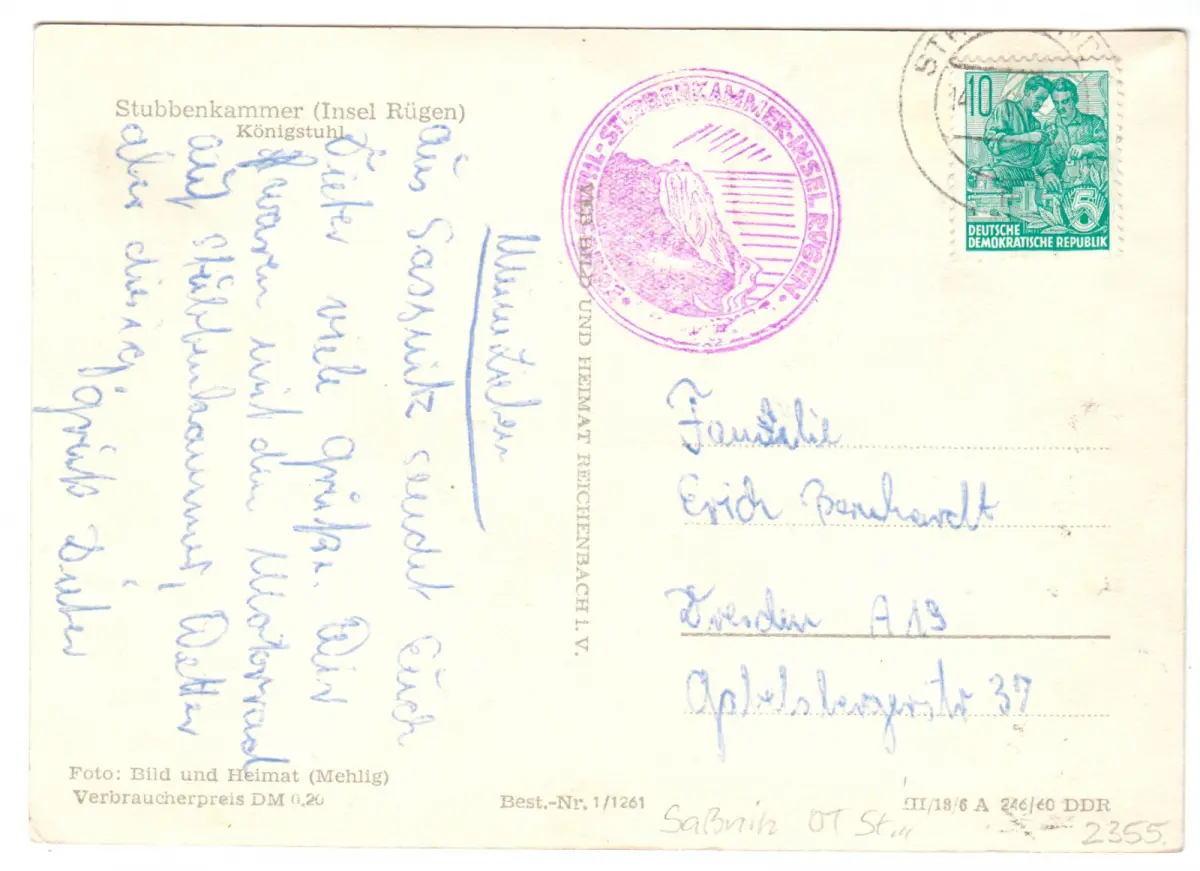 Stubbenkammer (Insel Rügen)
Königstuhl
Meine Lieben
Aus Sassnitz sendet Euch
Dieter viele Grüße. Wir
waren mit dem Motorrad
auf Stubbenkammer, Wetter
aber diesig
Gruß Dieter
Foto: Bild und Heimat (Mehlig)
Verbraucherpreis DM 0,20
VEB BILD UND HEIMAT REICHENBACH i. V.
Best.-Nr. 1/1261
STUBBENKAMMER-INSEL RÜGEN
14
10
5
DEUTSCHE
DEMOKRATISCHE REPUBLIK
Familie
Erich Bernhardt
Dresden A 19
37
III/18/6 A 246/60 DDR
Saßnitz OT St.
2355.